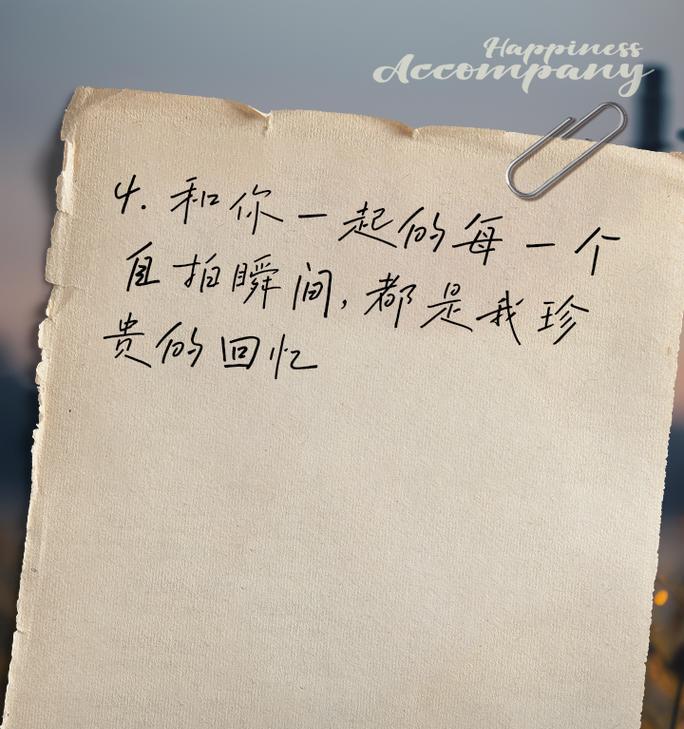 Happiness
Accompany
4. 和你一起的每一个
自拍瞬间, 都是我珍
贵的回忆